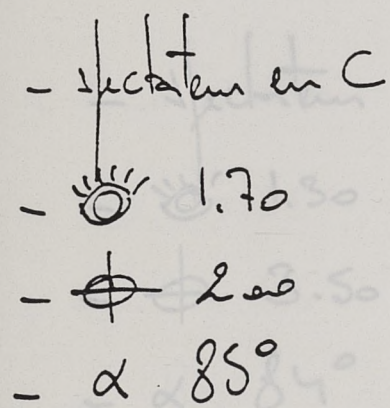 - spectateur en C
- 1.70
- 2.00
- α 85°